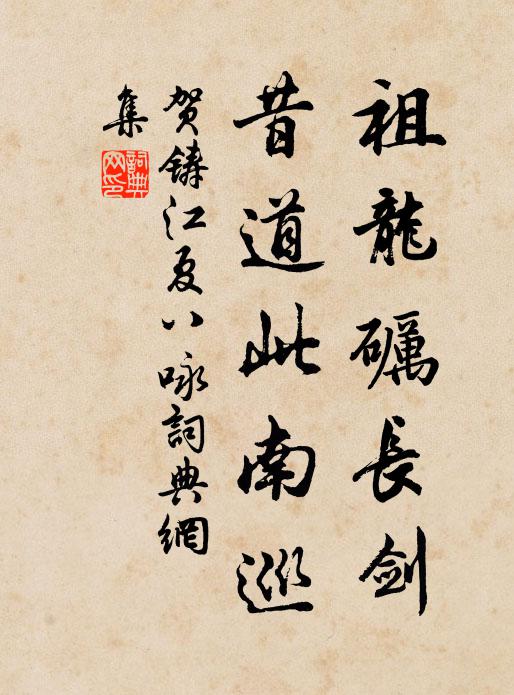 祖龍礪長劍
昔道此南巡
賀鑄江夏八咏詞典網
集
詞典網印